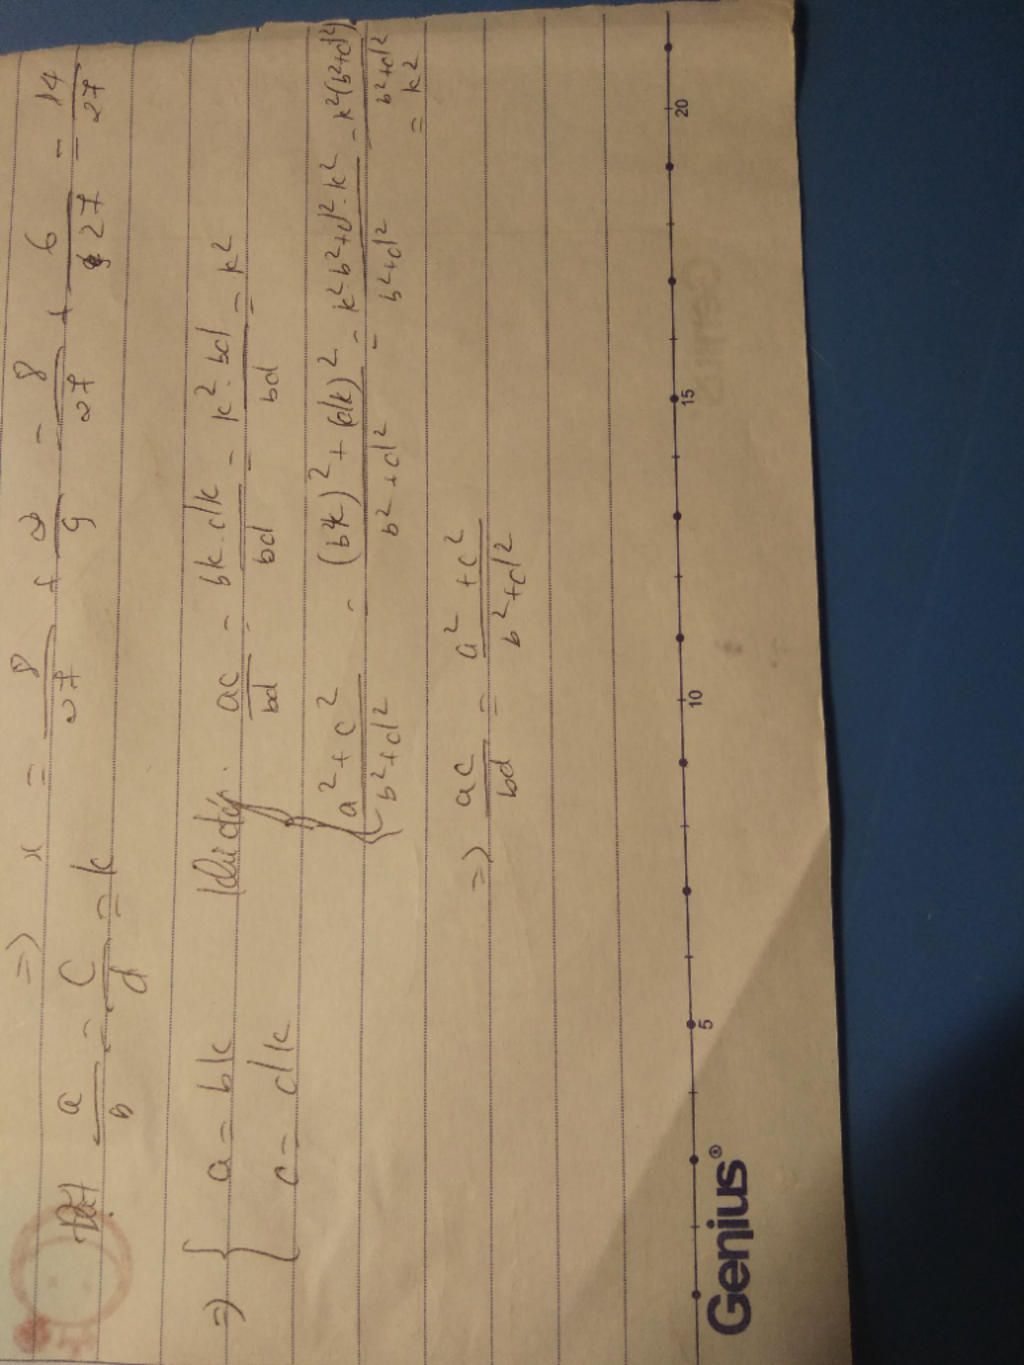 => x = 8/27 + 2/9 = 8/27 + 6/27 = 14/27
Đặt a/b = c/d = k
=> { a = bk
{ c = dk
Khi đó: ac/bd = bk.dk/bd = k².bd/bd = k²
{ a²+c²/b²+d² = (bk)²+(dk)²/b²+d² = k²b²+d².k²/b²+d² = k²(b²+d²)/b²+d²
= k²
=> ac/bd = a²+c²/b²+d²
5 10 15 20
Genius®